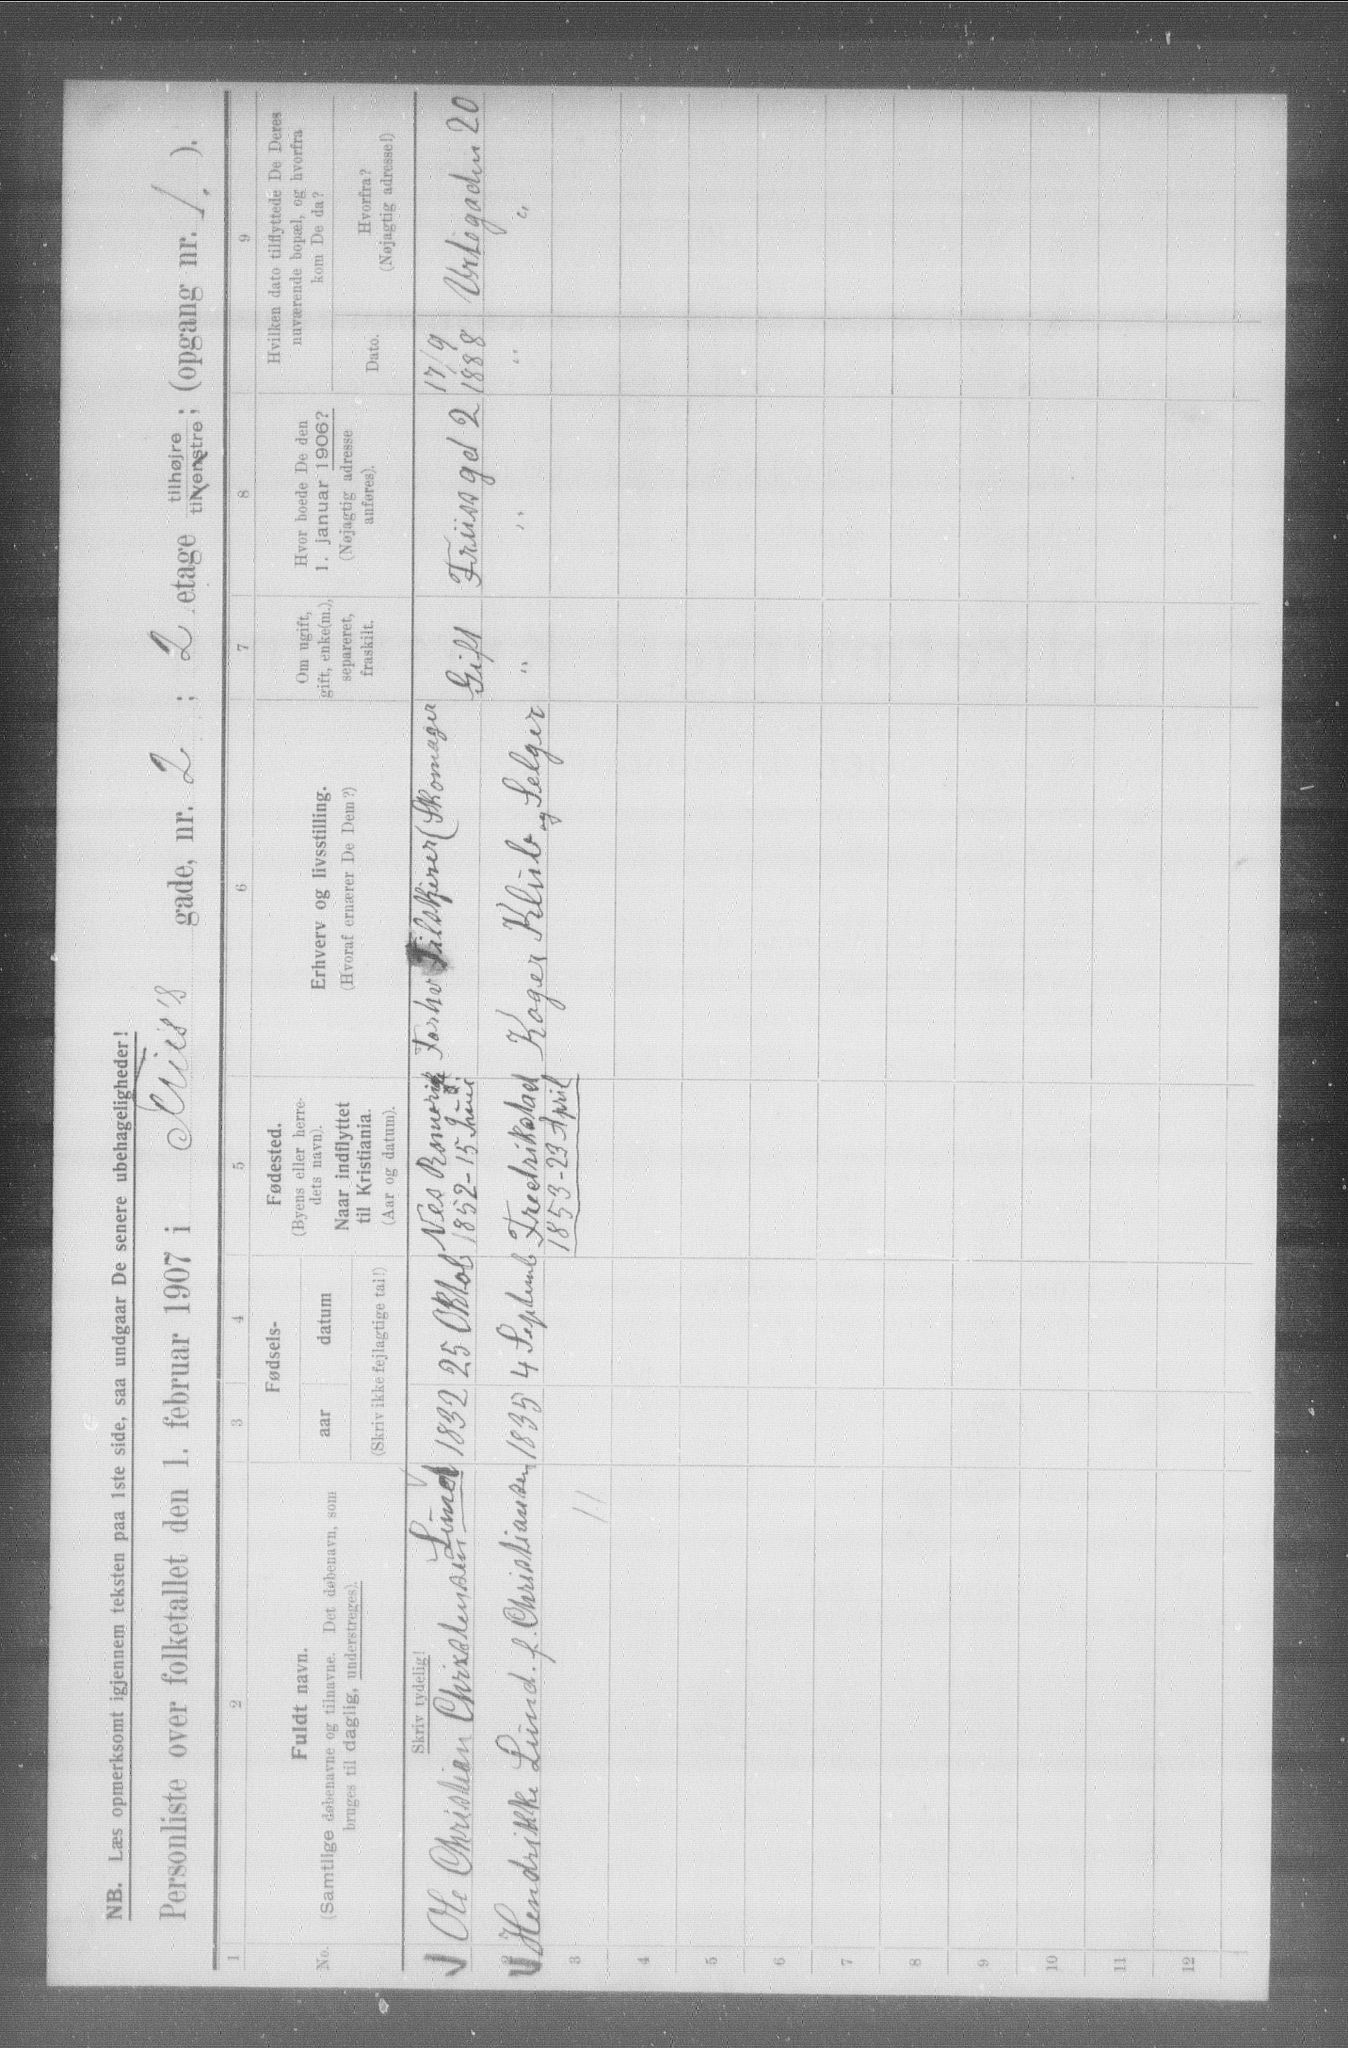 NB. Læs opmerksomt igjennem teksten paa 1ste side, saa undgaar De senere ubehageligheder!
Personliste over folketallet den 1. februar 1907 i Friis's gade, nr. 2 ; 2 etage tilhøjre tilvenstre ; (opgang nr. 1. ).
1 2 3 4 5 6 7 8 9
No.
Fuldt navn.
(Samtlige døbenavne og tilnavne. Det døbenavn, som
bruges til daglig, understreges).
Fødsels-
aar datum
(Skriv ikke fejlagtige tal!)
Fødested.
(Byens eller herre-
dets navn).
Naar indflyttet
til Kristiania.
(Aar og datum).
Erhverv og livsstilling.
(Hvoraf ernærer De Dem?)
Om ugift,
gift, enke(m.),
separeret,
fraskilt.
Hvor boede De den
1. januar 1906?
(Nøjagtig adresse
anføres).
Hvilken dato tilflyttede De Deres
nuværende bopæl, og hvorfra
kom De da?
Dato.
Hvorfra?
(Nøjagtig adresse!)
Skriv tydelig!
Ole Christian Christensen Lund 1832 25 Oktob Nes Romerige 1852-15 Juni Tilskjærer (Skomager Gift Friisgd 2 17/9 1888 Urtegaden 20
2 Hendrikke Lund. f. Christiansen 1835 4 Septemb Fredrikstad 1853-23 April Koger Klub og Selger " " " "
3
4
5
6
7
8
9
10
11
12